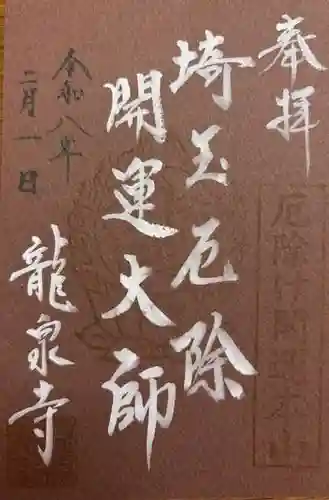 奉拝
厄除け開運本山
埼玉厄除
開運大師
令和八年
二月一日
龍泉寺